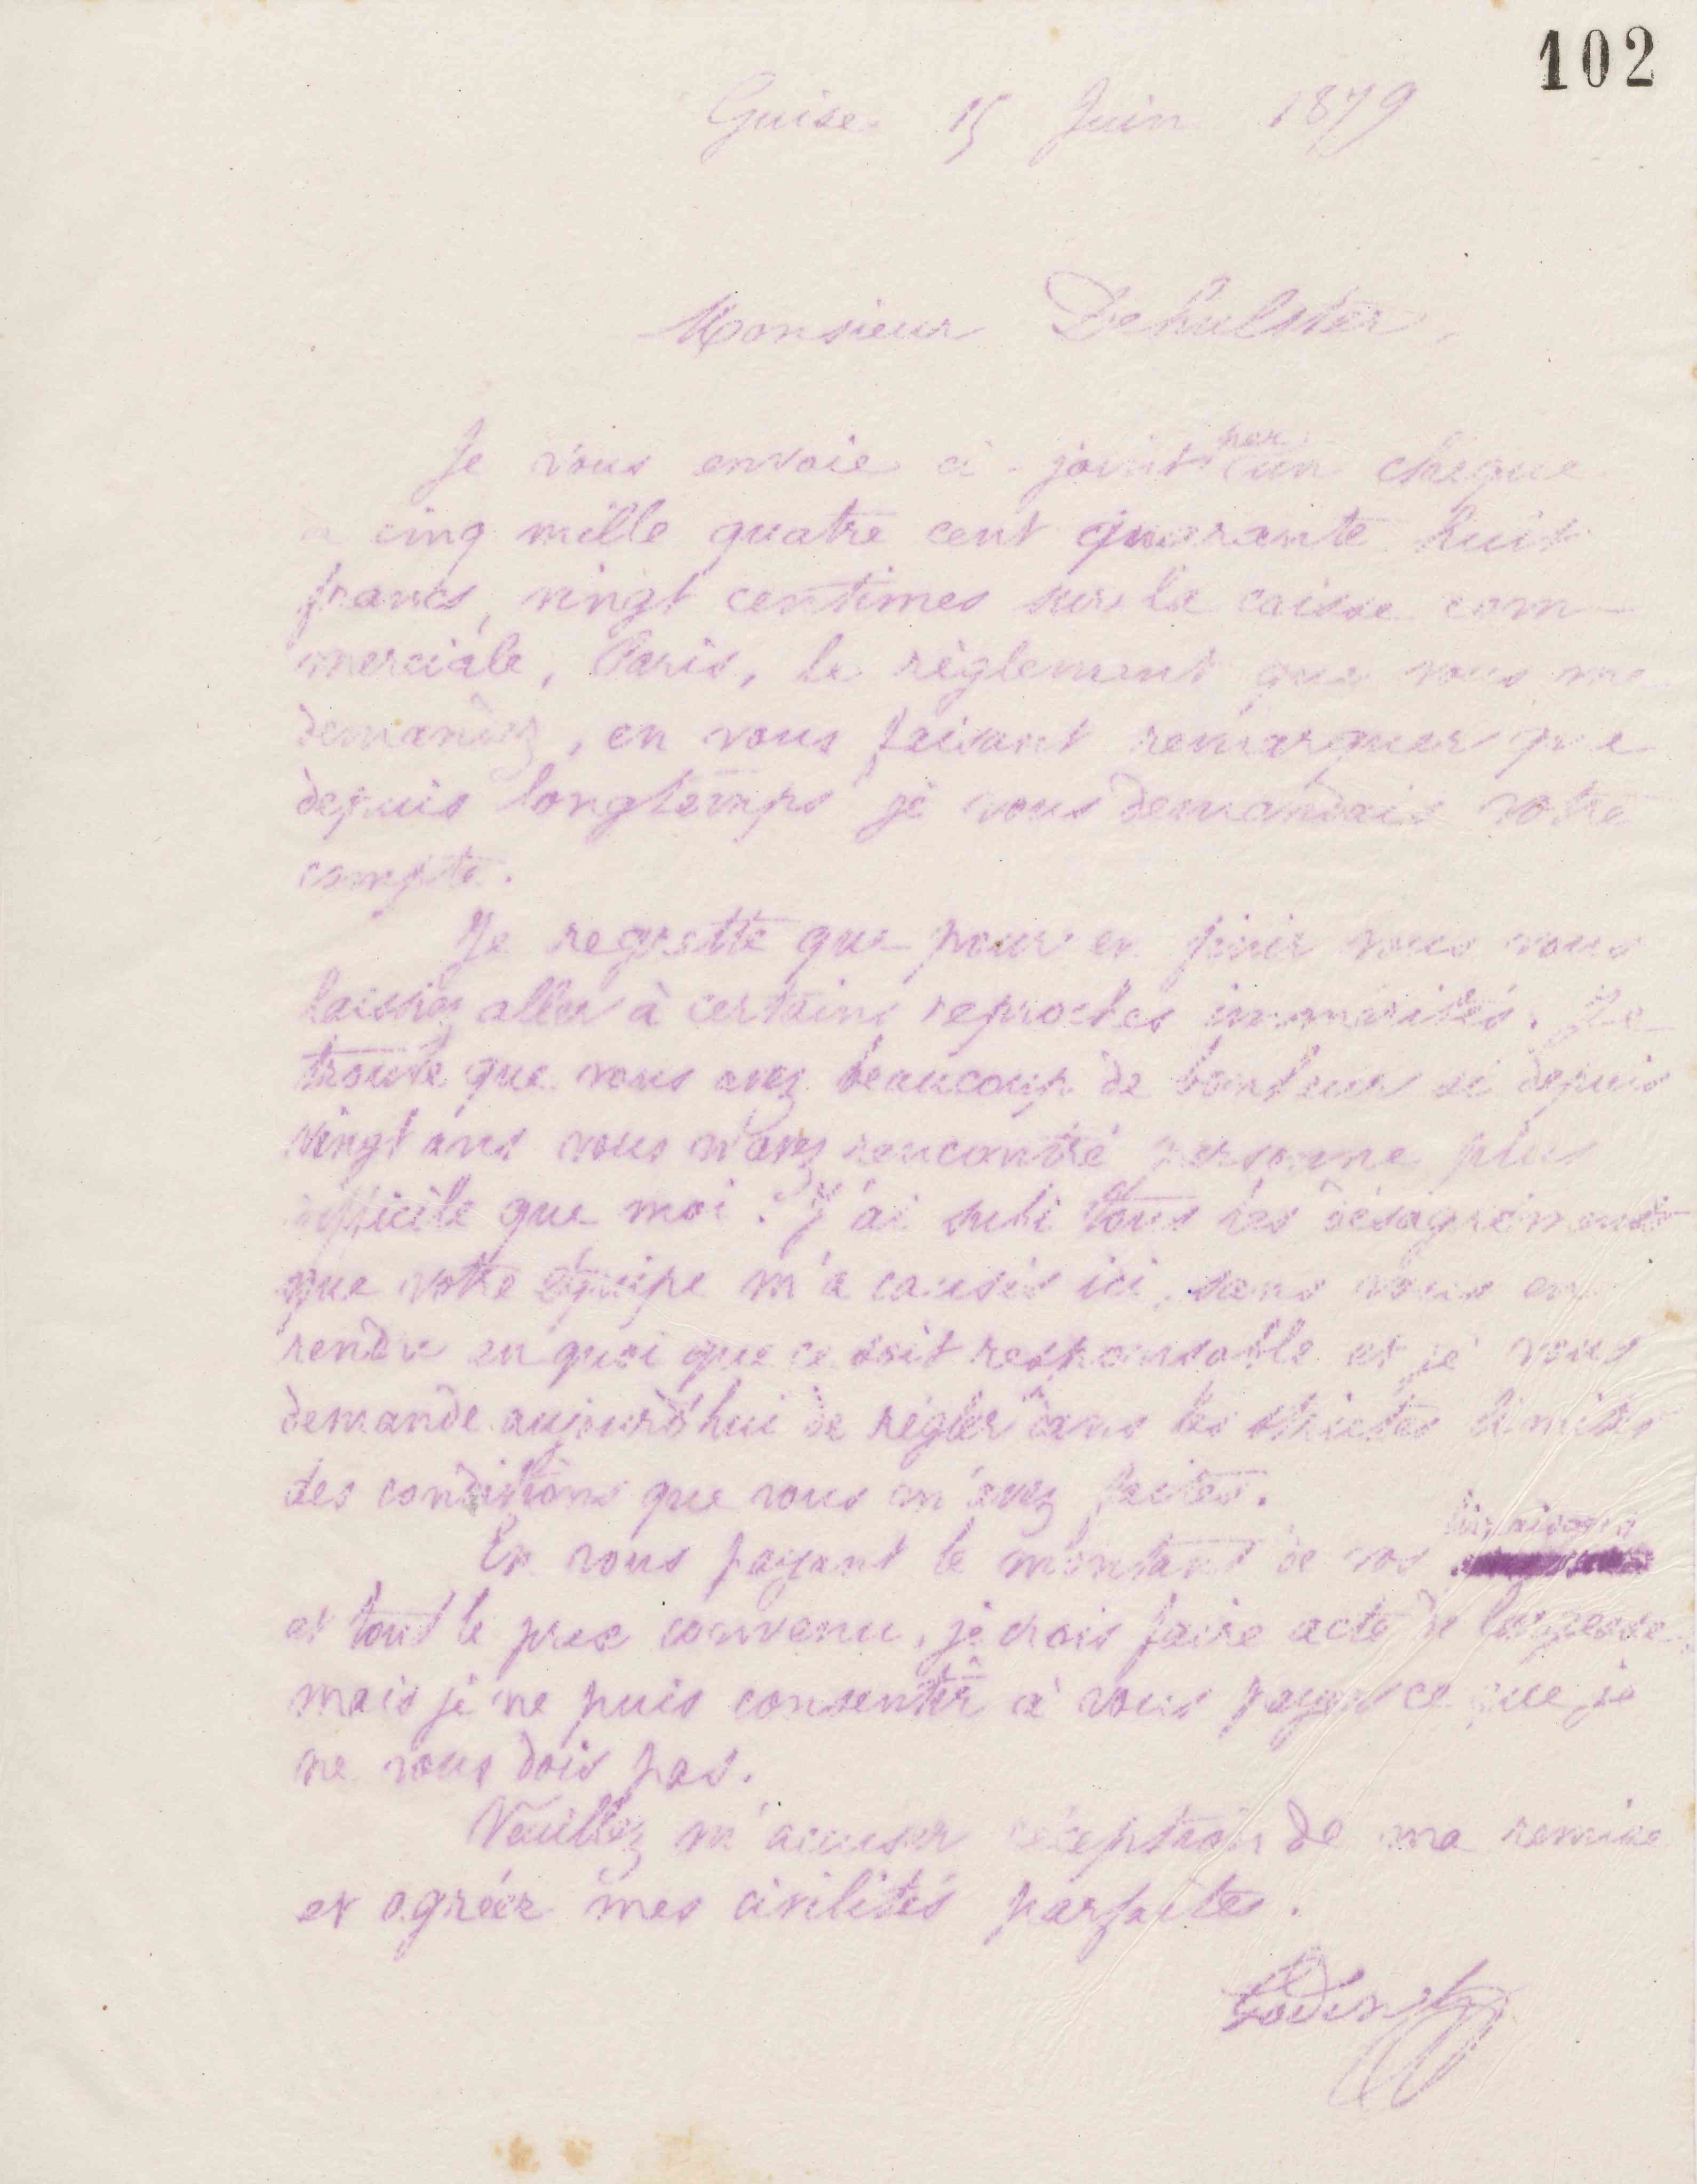 102
Guise 15 Juin 1879
Monsieur Dehulster,
Je vous envoie ci-joint par un chèque
à cinq mille quatre cent quarante huit
francs, vingt centimes sur la caisse com-
merciale, Paris, le règlement que vous me
demandez, en vous faisant remarquer que
depuis longtemps je vous demandais votre
compte.
Je regrette que pour en finir vous vous
laissiez aller à certains reproches immérités. Je
trouve que vous avez beaucoup de bonheur si depuis
vingt ans vous n'avez rencontré personne plus
difficile que moi. J'ai subi tous les désagréments
que votre équipe m'a causés ici, sans vous en
rendre en quoi que ce soit responsable et je vous
demande aujourd'hui de régler dans les strictes limites
des conditions que vous m'avez faites.
En vous payant le montant de vos livraisons
et tout le prix convenu, je crois faire acte de largesse
mais je ne puis consentir à vous payer ce que je
ne vous dois pas.
Veuillez m'accuser réception de ma remise
et agréer mes civilités parfaites.
Godin